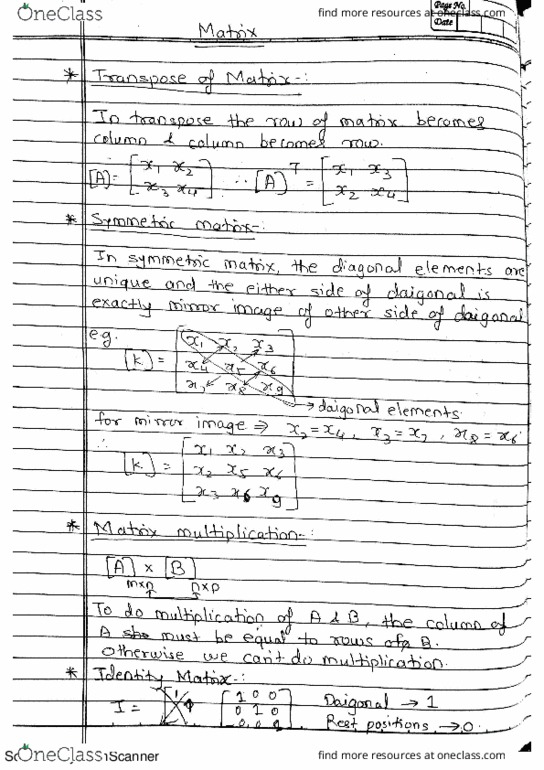 OneClass
find more resources at oneclass.com
Page No.
Date
Matrix
* Transpose of Matrix-:
In transpose the row of matrix becomes
column & column becomes row.
[A]= [x1 x2 ∴ [A]^T = [x1 x3
x3 x4] x2 x4]
* Symmetric matrix-:
In symmetric matrix, the diagonal elements are
unique and the either side of daigonal is
exactly mirror image of other side of daigonal
e.g.
[k] = [x1 x2 x3
x4 x5 x6
x7 x8 x9]
→ daigonal elements
for mirror image ⇒ x2 = x4, x3 = x7, x8 = x6
∴
[k] = [x1 x2 x3
x2 x5 x6
x3 x6 x9]
* Matrix multiplication-:
[A] × [B]
m×n n×p
To do multiplication of A & B, the column of
A must be equal to rows of B.
otherwise we can't do multiplication.
* Identity Matrix-:
I = [1 0 0 Daigonal → 1
0 1 0
0 0 1] Rest positions → 0.
OneClass
Scanner
find more resources at oneclass.com